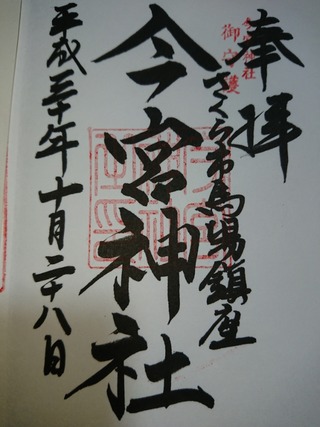 奉拝
さくら市馬場鎮座
今宮神社
平成三十年十月二十八日